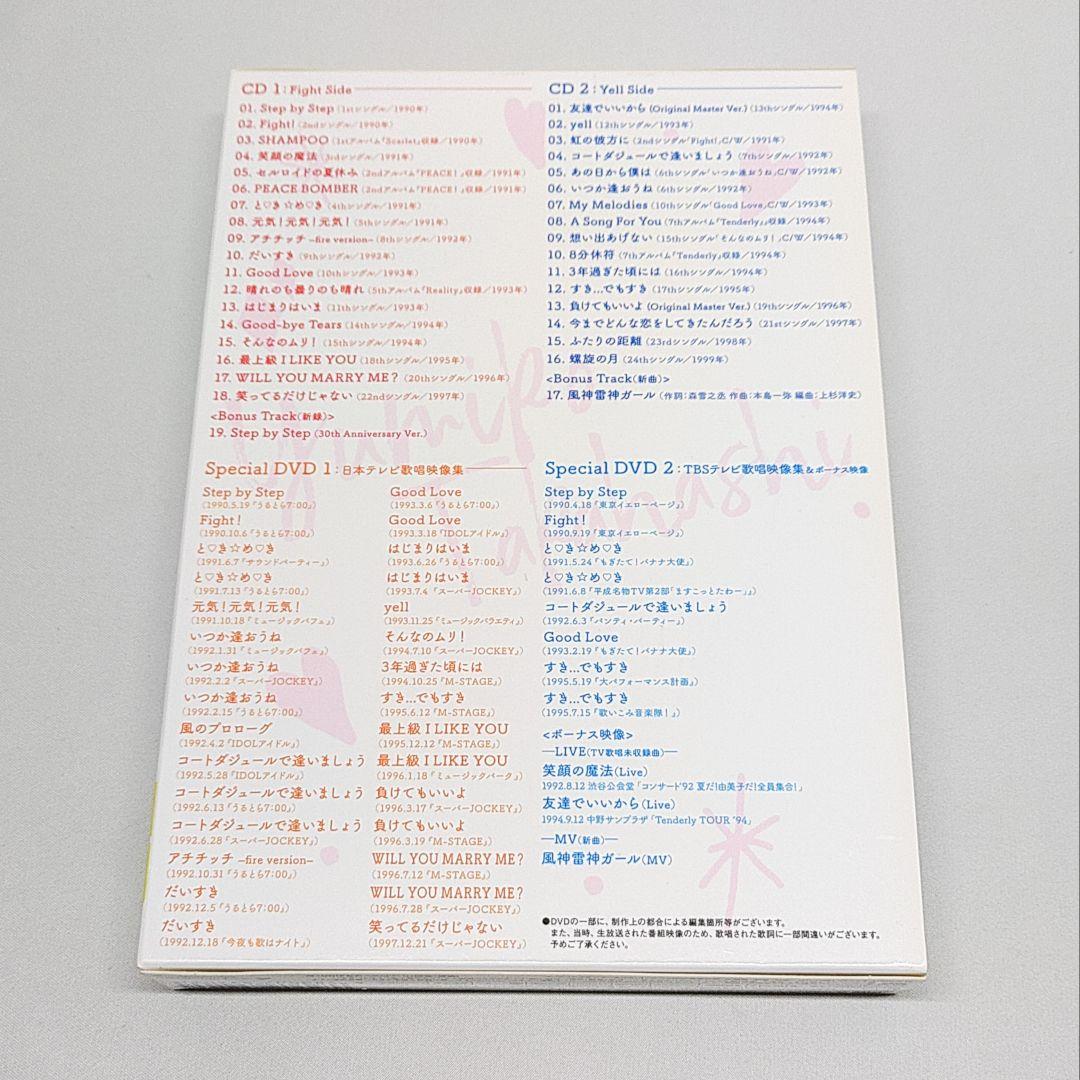 CD 1：Fight Side
01. Step by Step（1stシングル／1990年）
02. Fight!（2ndシングル／1990年）
03. SHAMPOO（1stアルバム『Scarlet』収録／1990年）
04. 笑顔の魔法（3rdシングル／1991年）
05. セルロイドの夏休み（2ndアルバム『PEACE！』収録／1991年）
06. PEACE BOMBER（2ndアルバム『PEACE！』収録／1991年）
07. と♡き☆め♡き（4thシングル／1991年）
08. 元気！元気！元気！（5thシングル／1991年）
09. アチチッチ –fire version–（8thシングル／1992年）
10. だいすき（9thシングル／1992年）
11. Good Love（10thシングル／1993年）
12. 晴れのも曇りのも晴れ（5thアルバム『Reality』収録／1993年）
13. はじまりはいま（11thシングル／1993年）
14. Good-bye Tears（14thシングル／1994年）
15. そんなのムリ！（15thシングル／1994年）
16. 最上級 I LIKE YOU（18thシングル／1995年）
17. WILL YOU MARRY ME？（20thシングル／1996年）
18. 笑ってるだけじゃない（22ndシングル／1997年）
<Bonus Track（新録）>
19. Step by Step（30th Anniversary Ver.）
CD 2：Yell Side
01. 友達でいいから（Original Master Ver.）（13thシングル／1994年）
02. yell（12thシングル／1993年）
03. 虹の彼方に（2ndシングル「Fight!」C/W／1991年）
04. コートダジュールで逢いましょう（7thシングル／1992年）
05. あの日から僕は（6thシングル「いつか逢おうね」C/W／1992年）
06. いつか逢おうね（6thシングル／1992年）
07. My Melodies（10thシングル「Good Love」C/W／1993年）
08. A Song For You（7thアルバム『Tenderly』収録／1994年）
09. 想い出あげない（15thシングル「そんなのムリ！」C/W／1994年）
10. 8分休符（7thアルバム『Tenderly』収録／1994年）
11. 3年過ぎた頃には（16thシングル／1994年）
12. すき…でもすき（17thシングル／1995年）
13. 負けてもいいよ（Original Master Ver.）（19thシングル／1996年）
14. 今までどんな恋をしてきたんだろう（21stシングル／1997年）
15. ふたりの距離（23rdシングル／1998年）
16. 螺旋の月（24thシングル／1999年）
<Bonus Track（新曲）>
17. 風神雷神ガール（作詞：森雪之丞 作曲：本島一弥 編曲：上杉洋史）
Yumiko Takahashi
Special DVD 1：日本テレビ歌唱映像集
Step by Step
（1990.5.19『うるとら7:00』）
Fight！
（1990.10.6『うるとら7:00』）
と♡き☆め♡き
（1991.6.7『サウンドパーティー』）
と♡き☆め♡き
（1991.7.13『うるとら7:00』）
元気！元気！元気！
（1991.10.18『ミュージックパフェ』）
いつか逢おうね
（1992.1.31『ミュージックパフェ』）
いつか逢おうね
（1992.2.2『スーパーJOCKEY』）
いつか逢おうね
（1992.2.15『うるとら7:00』）
風のプロローグ
（1992.4.2『IDOLアイドル』）
コートダジュールで逢いましょう
（1992.5.28『IDOLアイドル』）
コートダジュールで逢いましょう
（1992.6.13『うるとら7:00』）
コートダジュールで逢いましょう
（1992.6.28『スーパーJOCKEY』）
アチチッチ –fire version–
（1992.10.31『うるとら7:00』）
だいすき
（1992.12.5『うるとら7:00』）
だいすき
（1992.12.18『今夜も歌はナイト』）
Good Love
（1993.3.6『うるとら7:00』）
Good Love
（1993.3.18『IDOLアイドル』）
はじまりはいま
（1993.6.26『うるとら7:00』）
はじまりはいま
（1993.7.4 『スーパーJOCKEY』）
yell
（1993.11.25『ミュージックバラエティ』）
そんなのムリ！
（1994.7.10『スーパーJOCKEY』）
3年過ぎた頃には
（1994.10.25『M-STAGE』）
すき…でもすき
（1995.6.12『M-STAGE』）
最上級 I LIKE YOU
（1995.12.12『M-STAGE』）
最上級 I LIKE YOU
（1996.1.18『ミュージックパーク』）
負けてもいいよ
（1996.3.17『スーパーJOCKEY』）
負けてもいいよ
（1996.3.19『M-STAGE』）
WILL YOU MARRY ME？
（1996.7.12『M-STAGE』）
WILL YOU MARRY ME？
（1996.7.28『スーパーJOCKEY』）
笑ってるだけじゃない
（1997.12.21『スーパーJOCKEY』）
Special DVD 2：TBSテレビ歌唱映像集＆ボーナス映像
Step by Step
（1990.4.18『東京イエローページ』）
Fight！
（1990.9.19『東京イエローページ』）
と♡き☆め♡き
（1991.5.24『もぎたて！バナナ大使』）
と♡き☆め♡き
（1991.6.8『平成名物TV第2部「ますこっとたわー」』）
コートダジュールで逢いましょう
（1992.6.3『パンティ・パーティー』）
Good Love
（1993.2.19『もぎたて！バナナ大使』）
すき…でもすき
（1995.5.19『大パフォーマンス計画』）
すき…でもすき
（1995.7.15『歌いこみ音楽隊！』）
<ボーナス映像>
―LIVE（TV歌唱未収録曲）―
笑顔の魔法（Live）
1992.8.12 渋谷公会堂「コンサート'92 夏だ！由美子だ！全員集合！」
友達でいいから（Live）
1994.9.12 中野サンプラザ「Tenderly TOUR '94」
―MV（新曲）―
風神雷神ガール（MV）
●DVDの一部に、制作上の都合による編集箇所等がございます。
また、当時、生放送された番組映像のため、歌唱された歌詞に一部間違いがございます。
予めご了承ください。